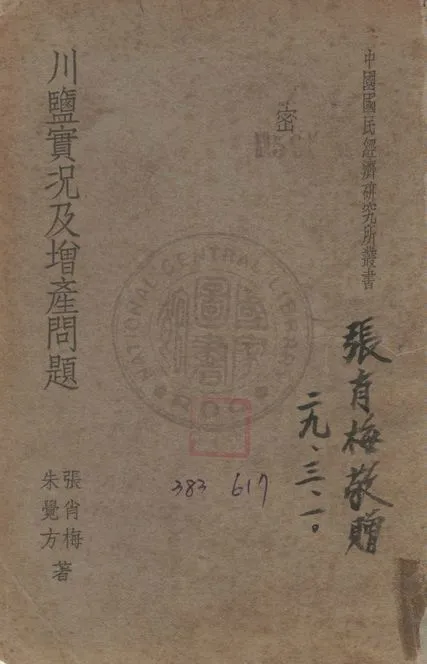 中國國民經濟研究所叢書
密
川鹽實况及增產問題
張肖梅
朱覺方
著
張肖梅敬贈
二九.三.一。
383 617
NATIONAL CENTRAL LIBRARY
國家圖書館